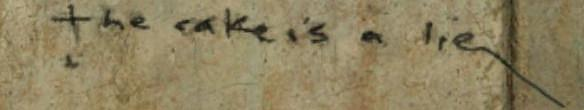 the cake is a lie